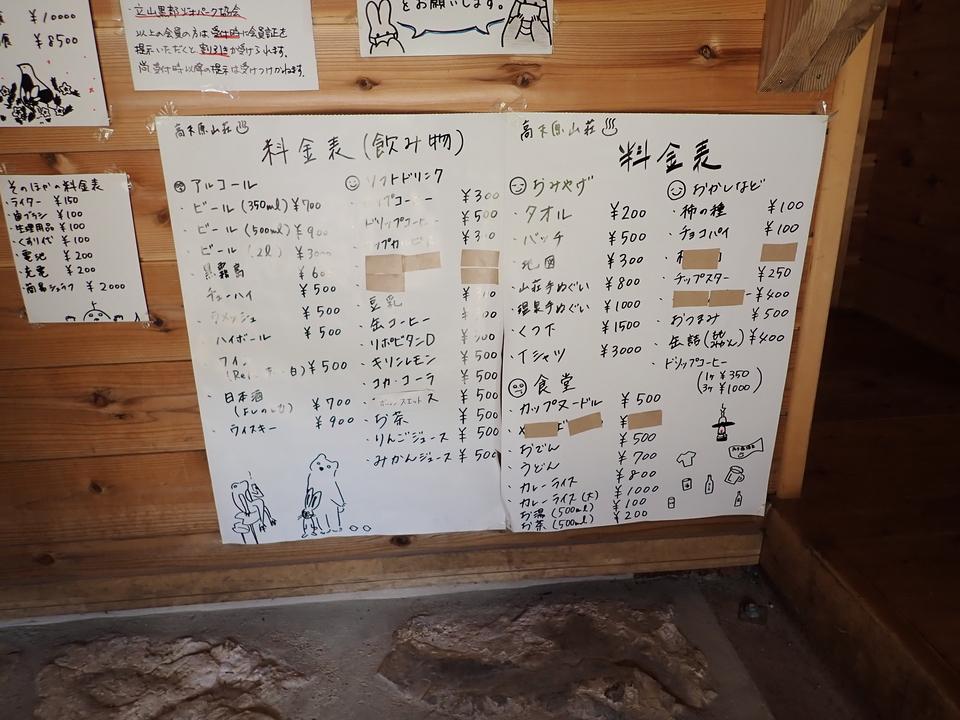 ¥10000
¥8500
・立山黒部ジオパーク協会
以上の会員の方は受付時に会員証を
提示いただくと割引きが受けられます。
尚、受付時以降の提示は受けつけかねます。
をお願いします。
そのほかの料金表
・ライター ¥150
・歯ブラシ ¥100
・生理用品 ¥100
・くすり代 ¥100
・電池 ¥200
・充電 ¥200
・簡易シュラフ ¥2000
高天原山荘
料金表(飲み物)
アルコール
・ビール(350ml) ¥700
・ビール(500ml) ¥900
・ビール(2l) ¥3000
・黒霧島 ¥60
・チューハイ ¥500
¥500
・ハイボール ¥500
・ワイン
白) ¥500
・日本酒
¥700
・ウィスキー ¥900
ソフトドリンク
¥300
ドリップコーヒー ¥500
¥300
・豆乳
・缶コーヒー
・リポビタンD
・キリンレモン ¥500
・コカ・コーラ ¥500
¥500
・お茶 ¥500
・りんごジュース ¥500
・みかんジュース ¥500
高天原山荘
料金表
おみやげ
・タオル ¥200
・バッチ ¥500
・地図 ¥300
・山荘手ぬぐい ¥800
・温泉手ぬぐい ¥1000
・くつ下 ¥1500
・Tシャツ ¥3000
食堂
・カップヌードル ¥500
¥
・おでん ¥500
・うどん ¥700
・カレーライス ¥800
・カレーライス(大) ¥1000
・お湯(500ml) ¥100
・お茶(500ml) ¥200
おかしなど
・柿の種 ¥100
・チョコパイ ¥100
・チップスター ¥250
¥400
・おつまみ ¥500
・缶詰(桃 みかん) ¥400
・ドリップコーヒー
(1ケ ¥350
3ケ ¥1000)